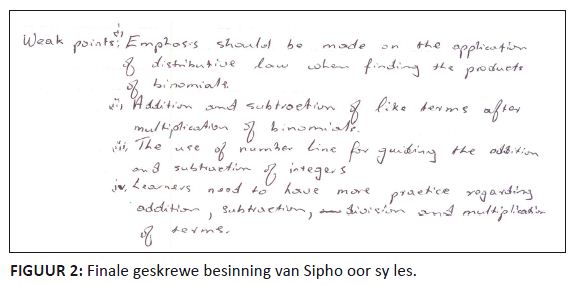 Weak points: i) Emphasis should be made on the application
of distributive law when finding the products
of binomials.
ii) Addition and subtraction of like terms after
multiplication of binomials.
iii) The use of number line for guiding the addition
and subtraction of integers
iv) Learners need to have more practice regarding
addition, subtraction, division and multiplication
of terms.
FIGUUR 2: Finale geskrewe besinning van Sipho oor sy les.